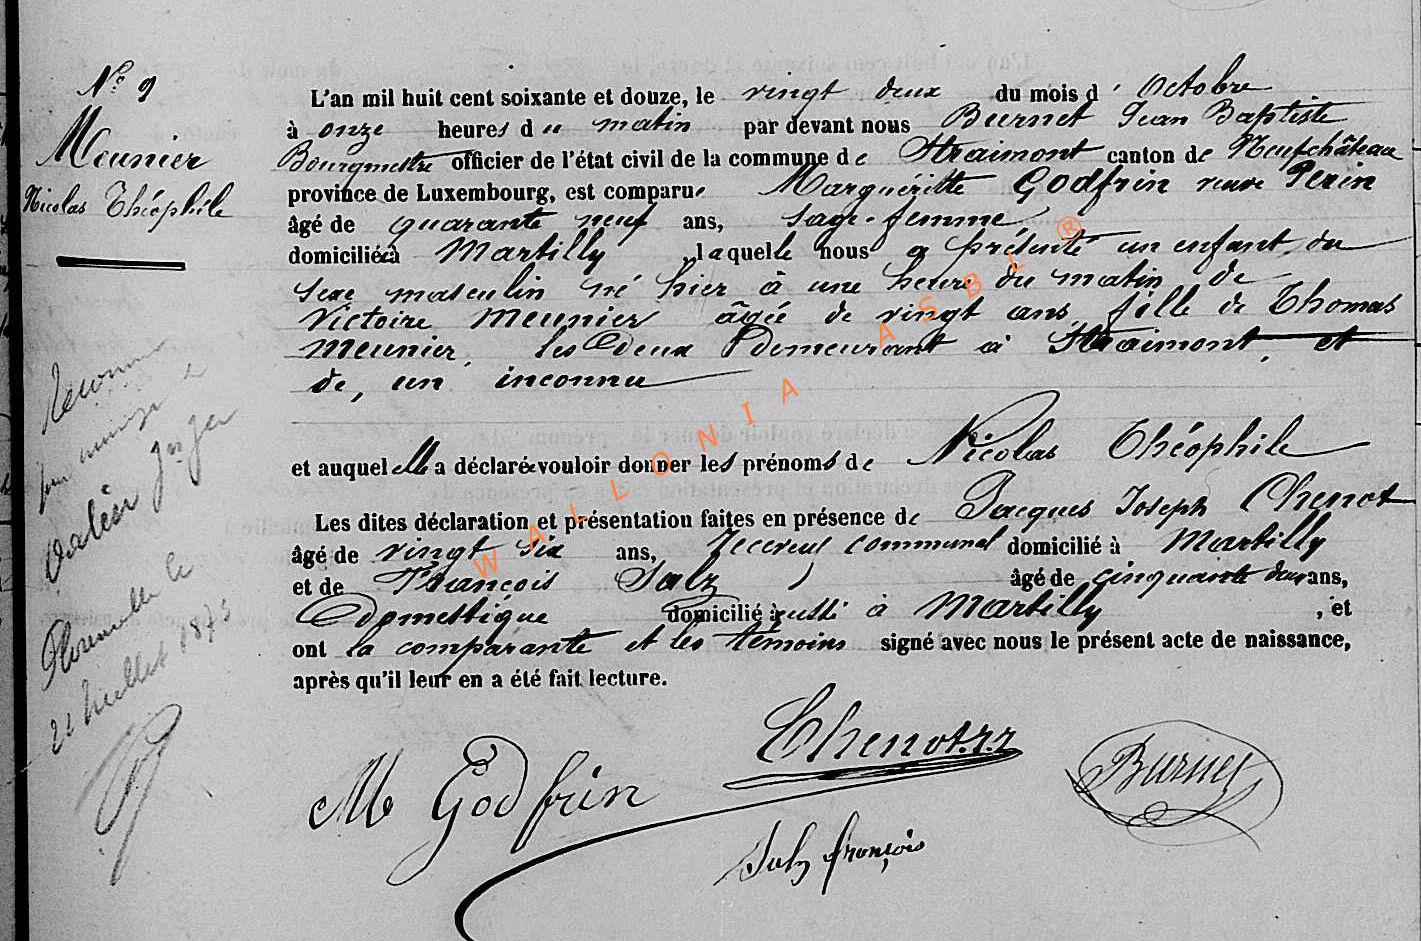 N° 9
Meunier
Nicolas Théophile
L'an mil huit cent soixante et douze, le vingt deux du mois d'Octobre
à onze heures du matin par devant nous Burnet Jean Baptiste
Bourgmestre officier de l'état civil de la commune de Straimont canton de Neufchâteau
province de Luxembourg, est comparue Marguéritte Godfrin veuve Perin
âgé de quarante neuf ans, Sage-femme
domiciliée à Martilly laquelle nous a présenté un enfant du
sexe masculin né hier à une heure du matin de
Victoire Meunier âgée de vingt ans fille de Thomas
Meunier, les deux demeurant à Straimont, et
de, un inconnu
et auquel elle a déclaré vouloir donner les prénoms de Nicolas Théophile
Les dites déclaration et présentation faites en présence de Jacques Joseph Chenot
âgé de vingt six ans, communal domicilié à Martilly
et de François Salz âgé de cinquante deux ans,
Domestique domicilié aussi à Martilly, et
ont la comparante et les témoins signé avec nous le présent acte de naissance,
après qu'il leur en a été fait lecture.
M Godfrin
Chenot J.J
Burnet
Salz françois
Reconnu
par mariage à
Florenville le
21 Juillet 1875
WALLONIA ASBL ®